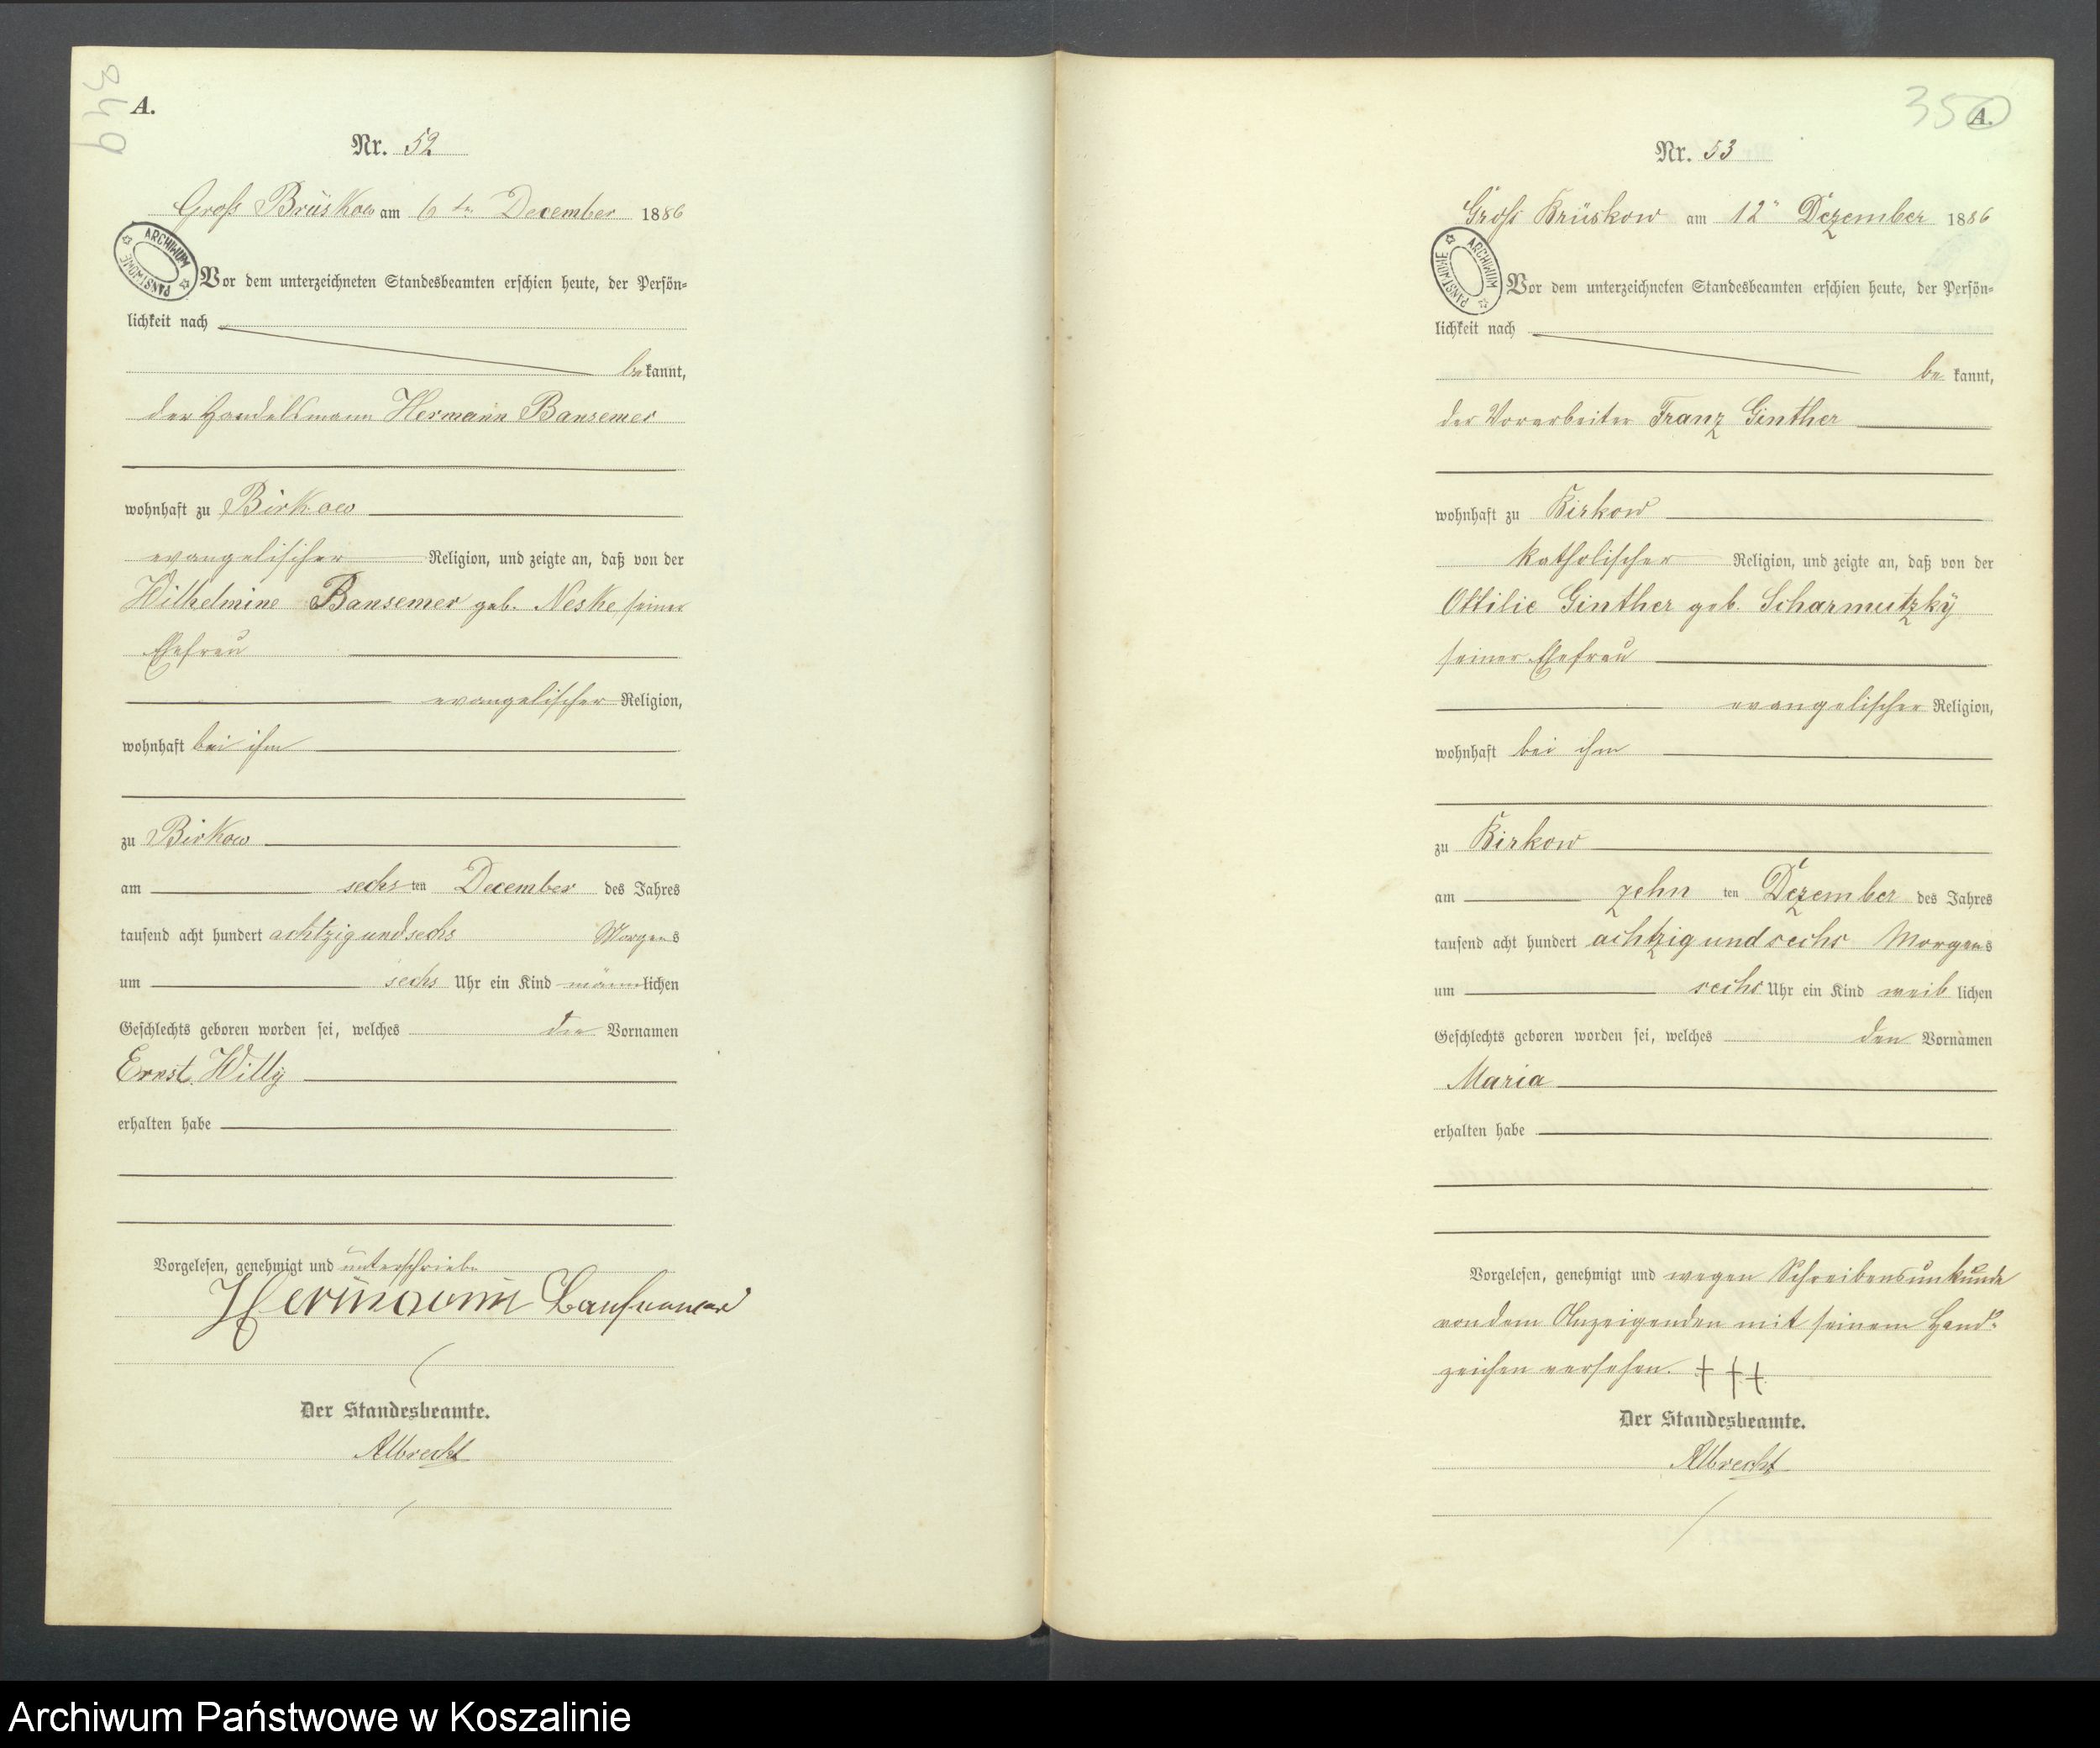 349
A.
Nr. 52
Groß Brüskow am 6 ten December 1886
ARCHIWUM PAŃSTWOWE
Vor dem unterzeichneten Standesbeamten erschien heute, der Persön-
lichkeit nach
bekannt,
der Handelsmann Hermann Bansemer
wohnhaft zu Birkow
evangelischer Religion, und zeigte an, daß von der
Wilhelmine Bansemer geb. Neske seiner
Ehefrau
evangelischer Religion,
wohnhaft bei ihm
zu Birkow
am sechsten December des Jahres
tausend acht hundert achtzigundsechs Morgens
um sechs Uhr ein Kind männlichen
Geschlechts geboren worden sei, welches die Vornamen
Ernst Willy
erhalten habe
Vorgelesen, genehmigt und unterschrieben
Hermann
Der Standesbeamte.
Albrecht
350
A.
Nr. 53
Groß Brüskow am 12" Dezember 1886
ARCHIWUM PAŃSTWOWE
Vor dem unterzeichneten Standesbeamten erschien heute, der Persön-
lichkeit nach
bekannt,
der Vorarbeiter Franz Ginther
wohnhaft zu Birkow
katholischer Religion, und zeigte an, daß von der
Ottilie Ginther geb. Scharmutzky
seiner Ehefrau
evangelischer Religion,
wohnhaft bei ihm
zu Birkow
am zehn ten Dezember des Jahres
tausend acht hundert achtzigundsechs Morgens
um sechs Uhr ein Kind weiblichen
Geschlechts geboren worden sei, welches den Vornamen
Maria
erhalten habe
Vorgelesen, genehmigt und wegen Schreibensunkunde
von dem Anzeigenden mit seinem Hand-
zeichen versehen. +++
Der Standesbeamte.
Albrecht
Archiwum Państwowe w Koszalinie